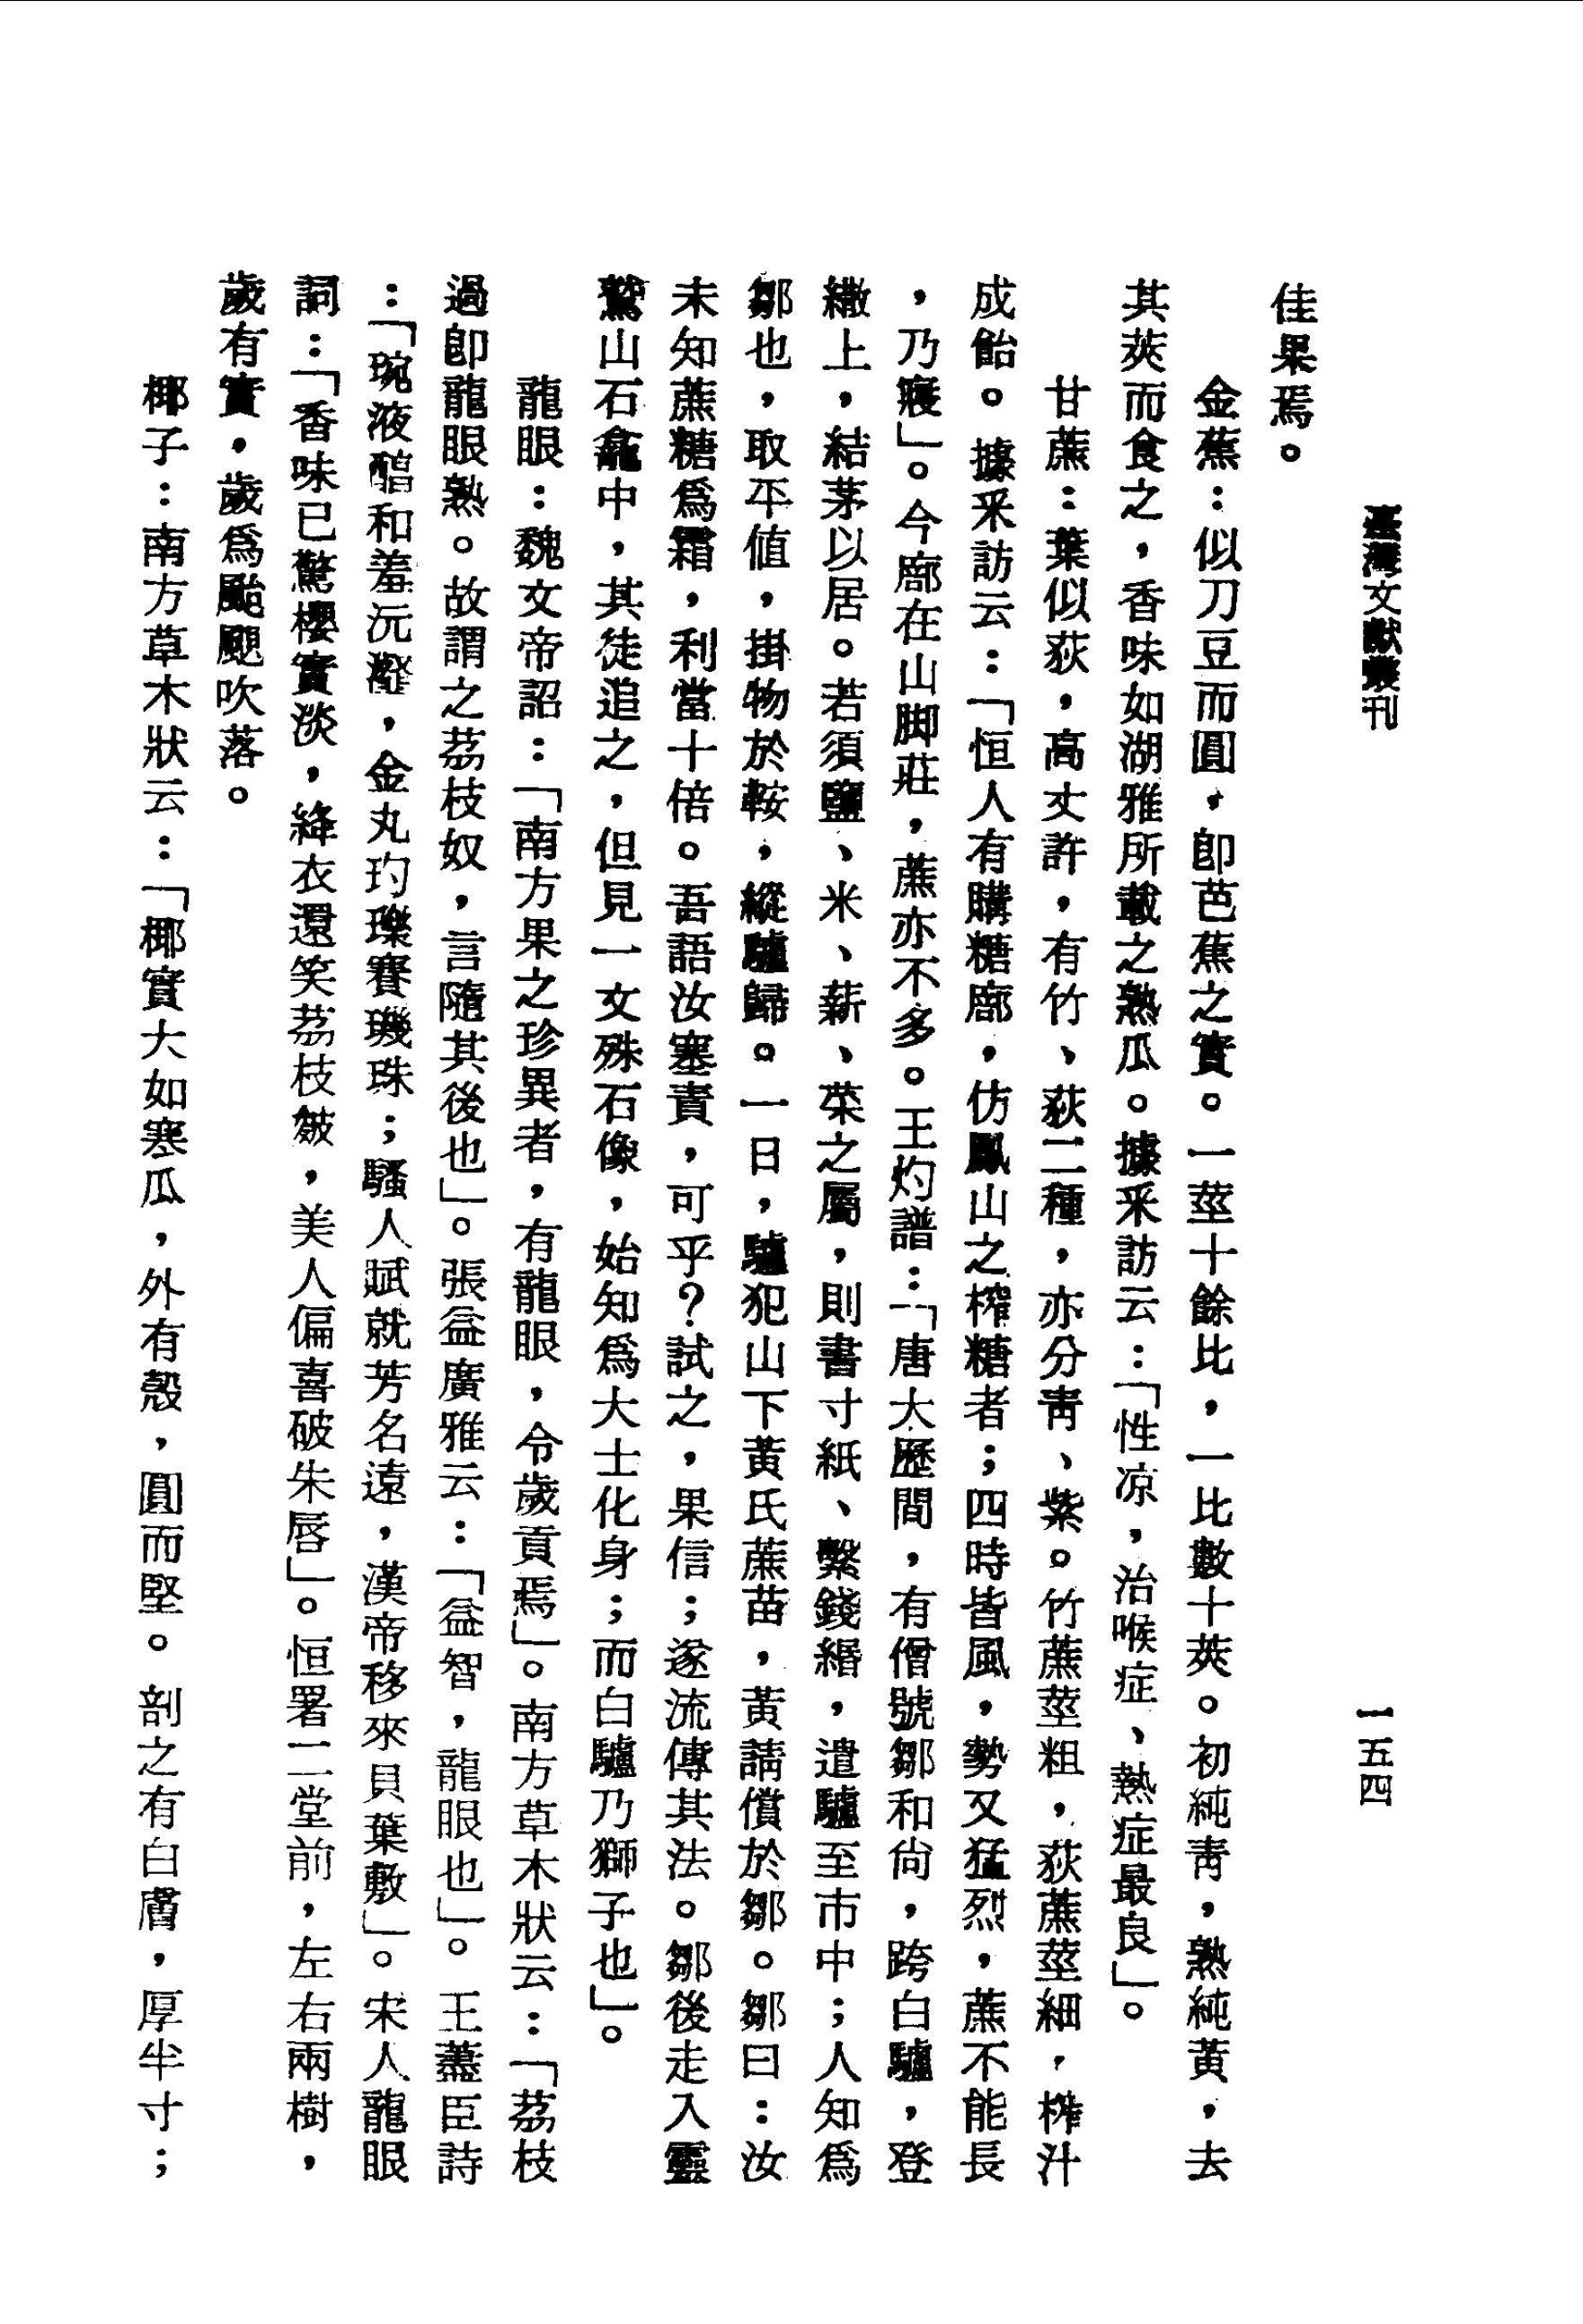 臺灣文獻叢刊
一五四
佳果焉。
金蕉：似刀豆而圓，卽芭蕉之實。一莖十餘比，一比數十莢。初純靑，熟純黃，去
其莢而食之，香味如湖雅所載之熟瓜。據采訪云：「性凉，治喉症、熱症最良」。
甘蔗：葉似荻，高丈許，有竹、荻二種，亦分靑、紫。竹蔗莖粗，荻蔗莖細，榨汁
成飴。據采訪云：「恒人有購糖廍，仿鳳山之榨糖者；四時皆風，勢又猛烈，蔗不能長
，乃寢」。今廍在山脚莊，蔗亦不多。王灼譜：「唐大歷間，有僧號鄒和尙，跨白驢，登
繖上，結茅以居。若須鹽、米、薪、菜之屬，則書寸紙、繫錢緡，遣驢至市中；人知爲
鄒也，取平値，掛物於鞍，縱驢歸。一日，驢犯山下黃氏蔗苗，黃請償於鄒。鄒曰：汝
未知蔗糖爲霜，利當十倍。吾語汝塞責，可乎？試之，果信；遂流傳其法。鄒後走入靈
鷲山石龕中，其徒追之，但見一文殊石像，始知爲大士化身；而白驢乃獅子也」。
龍眼：魏文帝詔：「南方果之珍異者，有龍眼，令歲貢焉」。南方草木狀云：「荔枝
過卽龍眼熟。故謂之荔枝奴，言隨其後也」。張益廣雅云：「益智，龍眼也」。王藎臣詩
：「琬液醕和羞沆瀣，金丸玓瓅賽璣珠；騷人賦就芳名遠，漢帝移來貝葉敷」。宋人龍眼
詞：「香味已驚櫻實淡，絳衣還笑荔枝皴，美人偏喜破朱唇」。恒署二堂前，左右兩樹，
歲有實，歲爲颱颶吹落。
椰子：南方草木狀云：「椰實大如寒瓜，外有㲉，圓而堅。剖之有白膚，厚半寸；